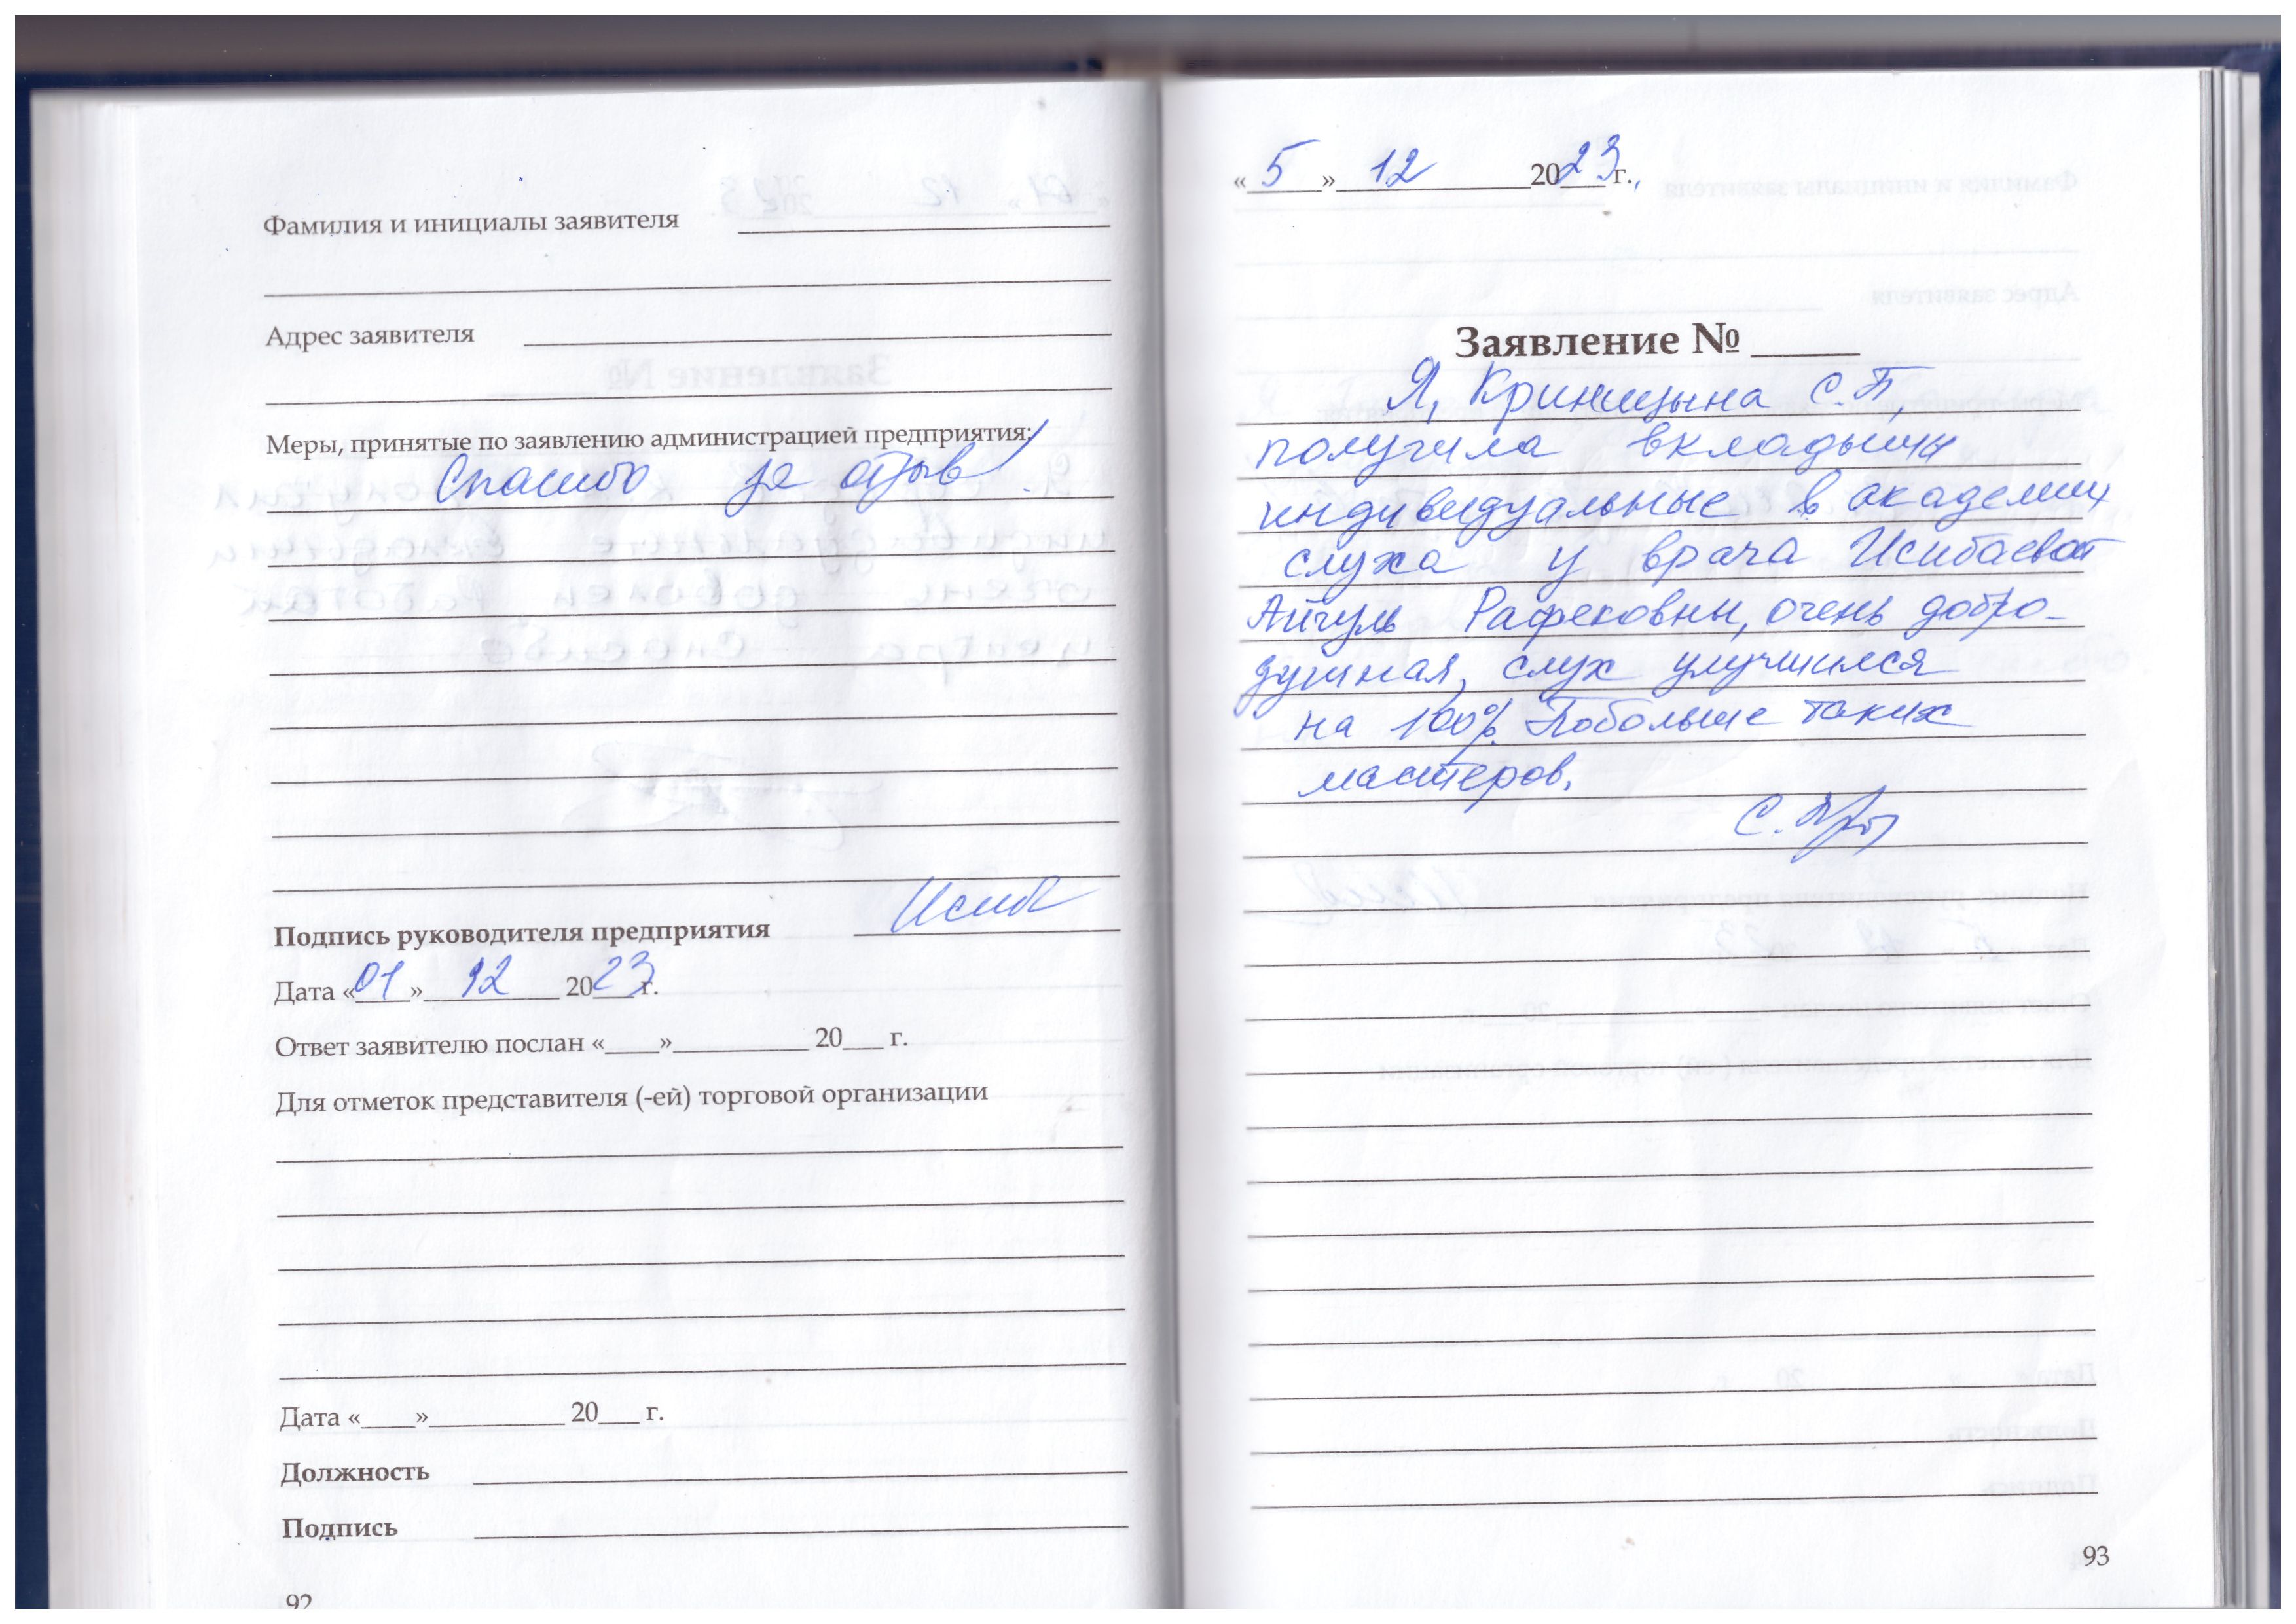 Фамилия и инициалы заявителя
Адрес заявителя
Меры, принятые по заявлению администрацией предприятия:
Спасибо за отзыв!
Подпись руководителя предприятия
Дата «01» 12 2023 г.
Ответ заявителю послан «____»__________ 20___ г.
Для отметок представителя (-ей) торговой организации
Дата «____»__________ 20___ г.
Должность
Подпись
92
«5» 12 2023 г.
Заявление № ____
Я, Криницына С.П,
получила вкладыши
индивидуальные в академии
слуха у врача Исибаевой
Айгуль Рафековны, очень добро-
душная, слух улучшился
на 100%. Побольше таких
мастеров.
93